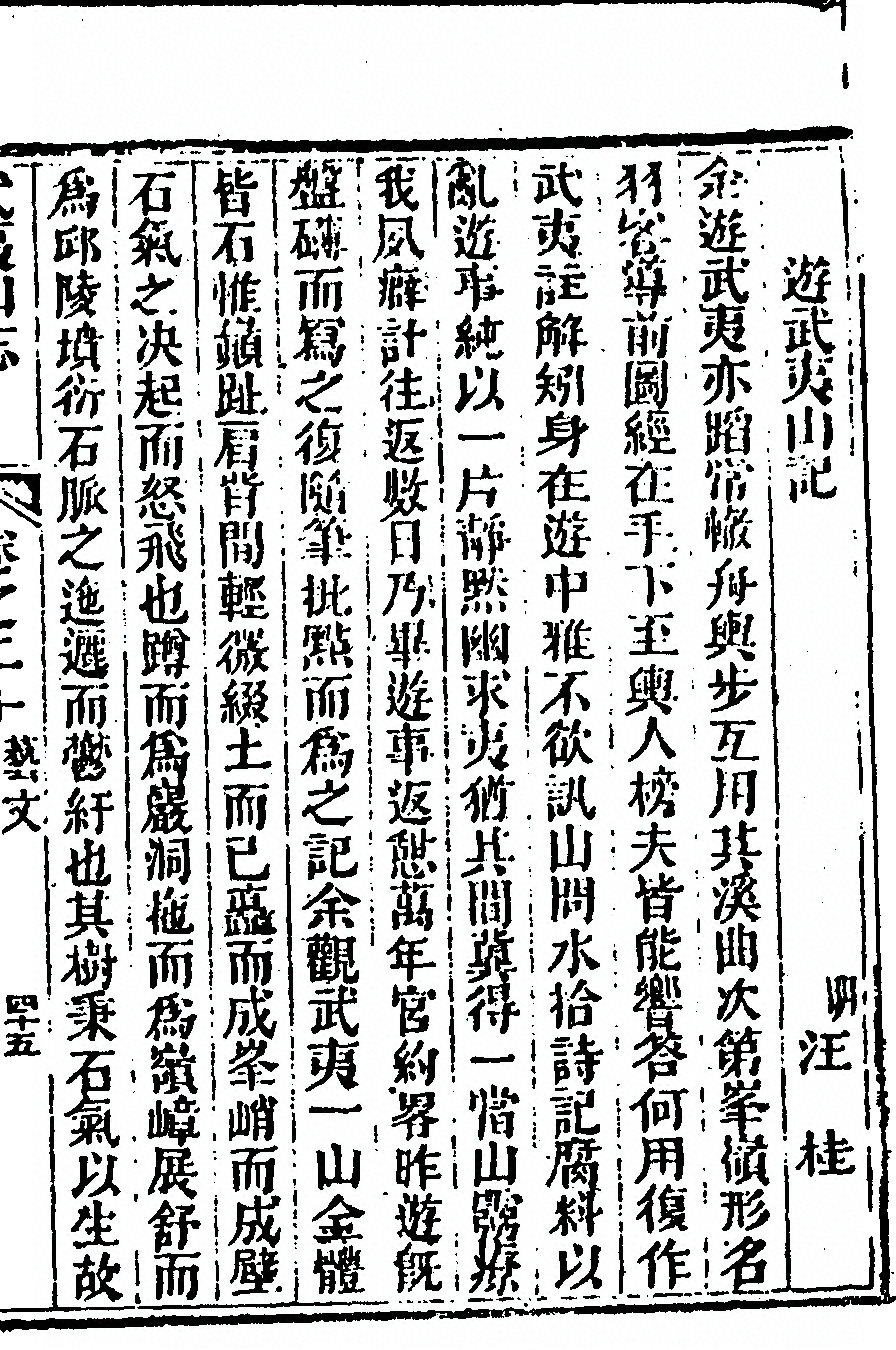 遊武夷山記
明汪桂
余遊武夷亦蹈常轍舟輿步互用其溪曲次第峯嶺形名
羽客導前圖經在手下至輿人榜夫皆能響答何用復作
武夷註解矧身在遊中雅不欲訊山問水拾詩記腐料以
亂遊事純以一片靜默幽求夷猶其間冀得一當山靈療
我夙癖計往返數日乃畢遊事返憇萬年宮約畧昨遊旣
盤礴而寫之復隨筆批點而爲之記余觀武夷一山全體
皆石惟巔趾眉背間輕微綴土而已矗而成峯峭而成壁
石氣之决起而怒飛也蹲而爲巖洞拖而爲嶺嶂展舒而
爲邱陵墳衍石脈之迤邐而鬱紆也其樹秉石氣以生故
武夷山志
卷之二十 藝文
四十五